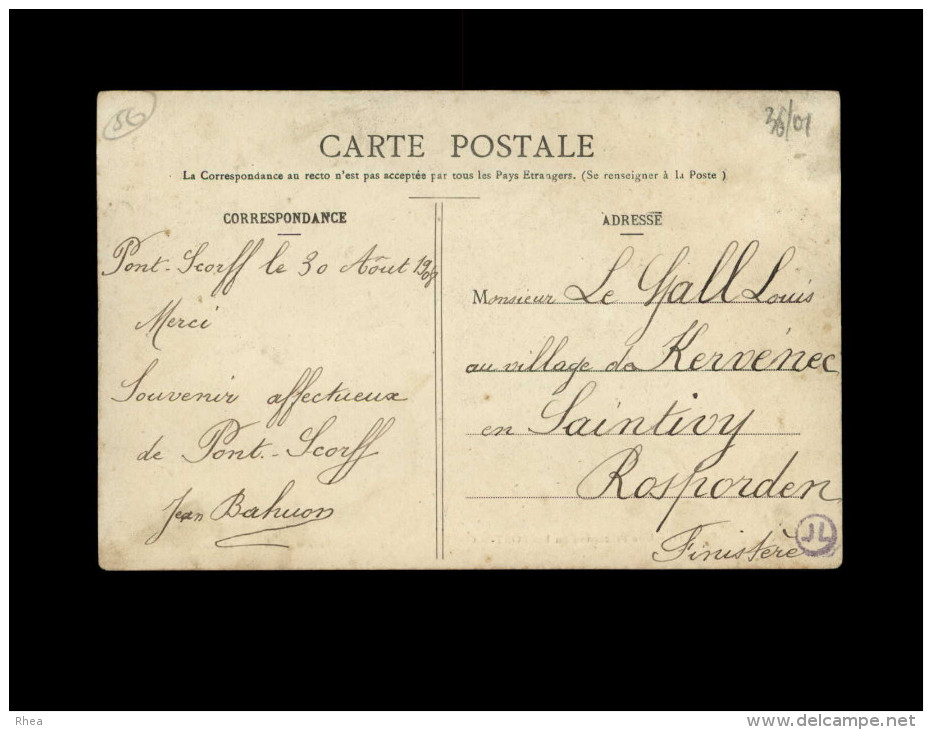 56
CARTE POSTALE
La Correspondance au recto n'est pas acceptée par tous les Pays Etrangers. (Se renseigner à la Poste )
CORRESPONDANCE
Pont-Scorff le 30 Août 1908
Merci
Souvenir affectueux
de Pont-Scorff
Jean Bahuon
ADRESSE
Monsieur Le Gall Louis
au village de Kervénec
en Saintivy
Rosporden
Finistère
JL
Rhea
www.delcampe.net